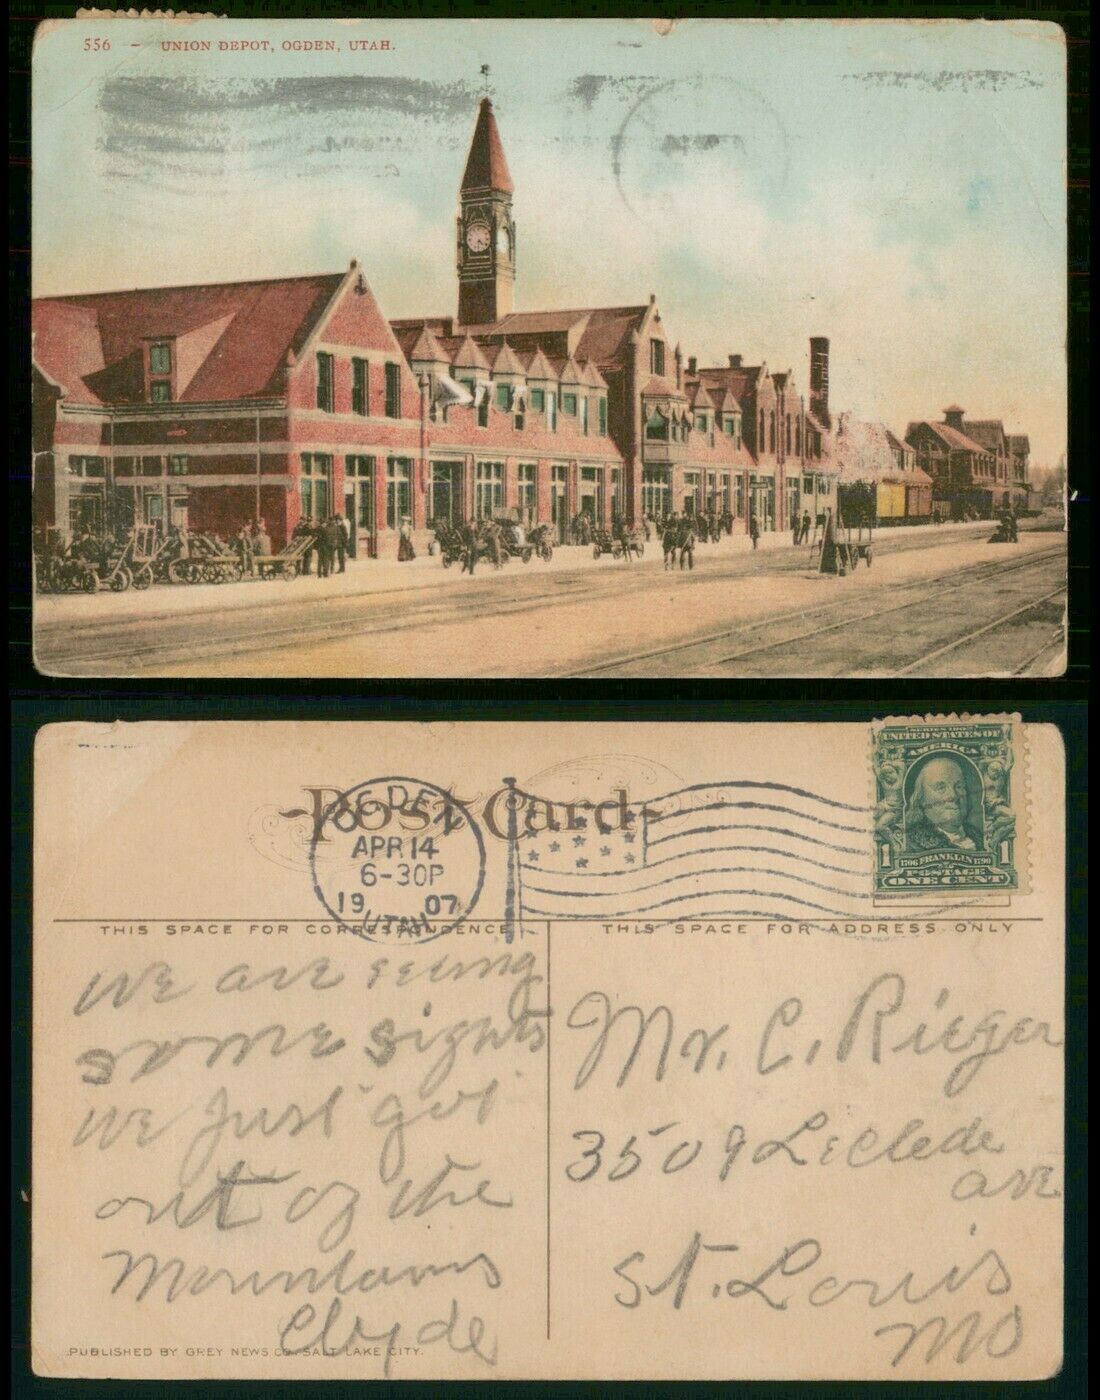 556 - UNION DEPOT, OGDEN, UTAH.
Post Card
OGDEN
APR 14
6-30P
19 07
UTAH
SERIES 1902
UNITED STATES OF
AMERICA
1 1706 FRANKLIN 1790 1
POSTAGE
ONE CENT
THIS SPACE FOR CORRESPONDENCE
THIS SPACE FOR ADDRESS ONLY
we are seeing
some sights
we just got
out of the
Mountains
Clyde
Mr. C. Rieger
3509 LeClede
ave
St. Louis
MO
PUBLISHED BY GREY NEWS CO. SALT LAKE CITY.